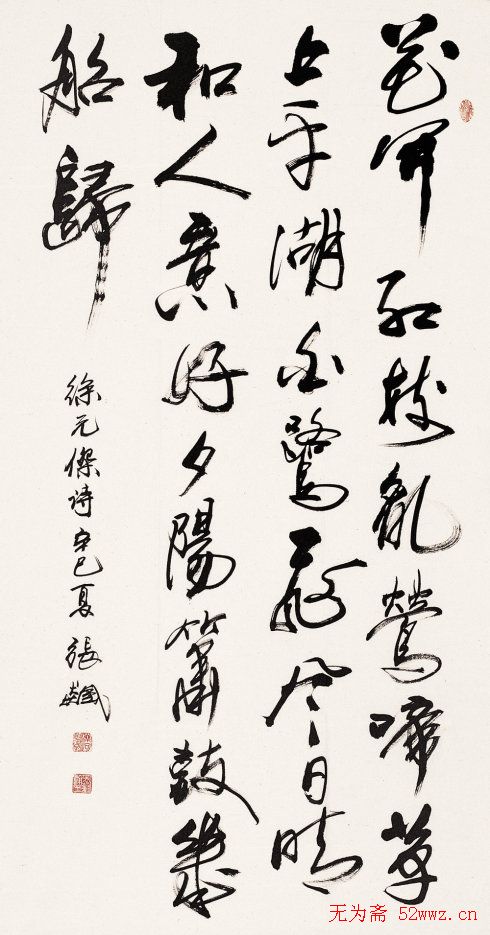 花開紅樹亂鶯啼草
長平湖白鷺飛風日晴
和人意好夕陽簫鼓幾
船歸
徐元傑詩辛巳夏張飆
无为斋 52wwz.cn